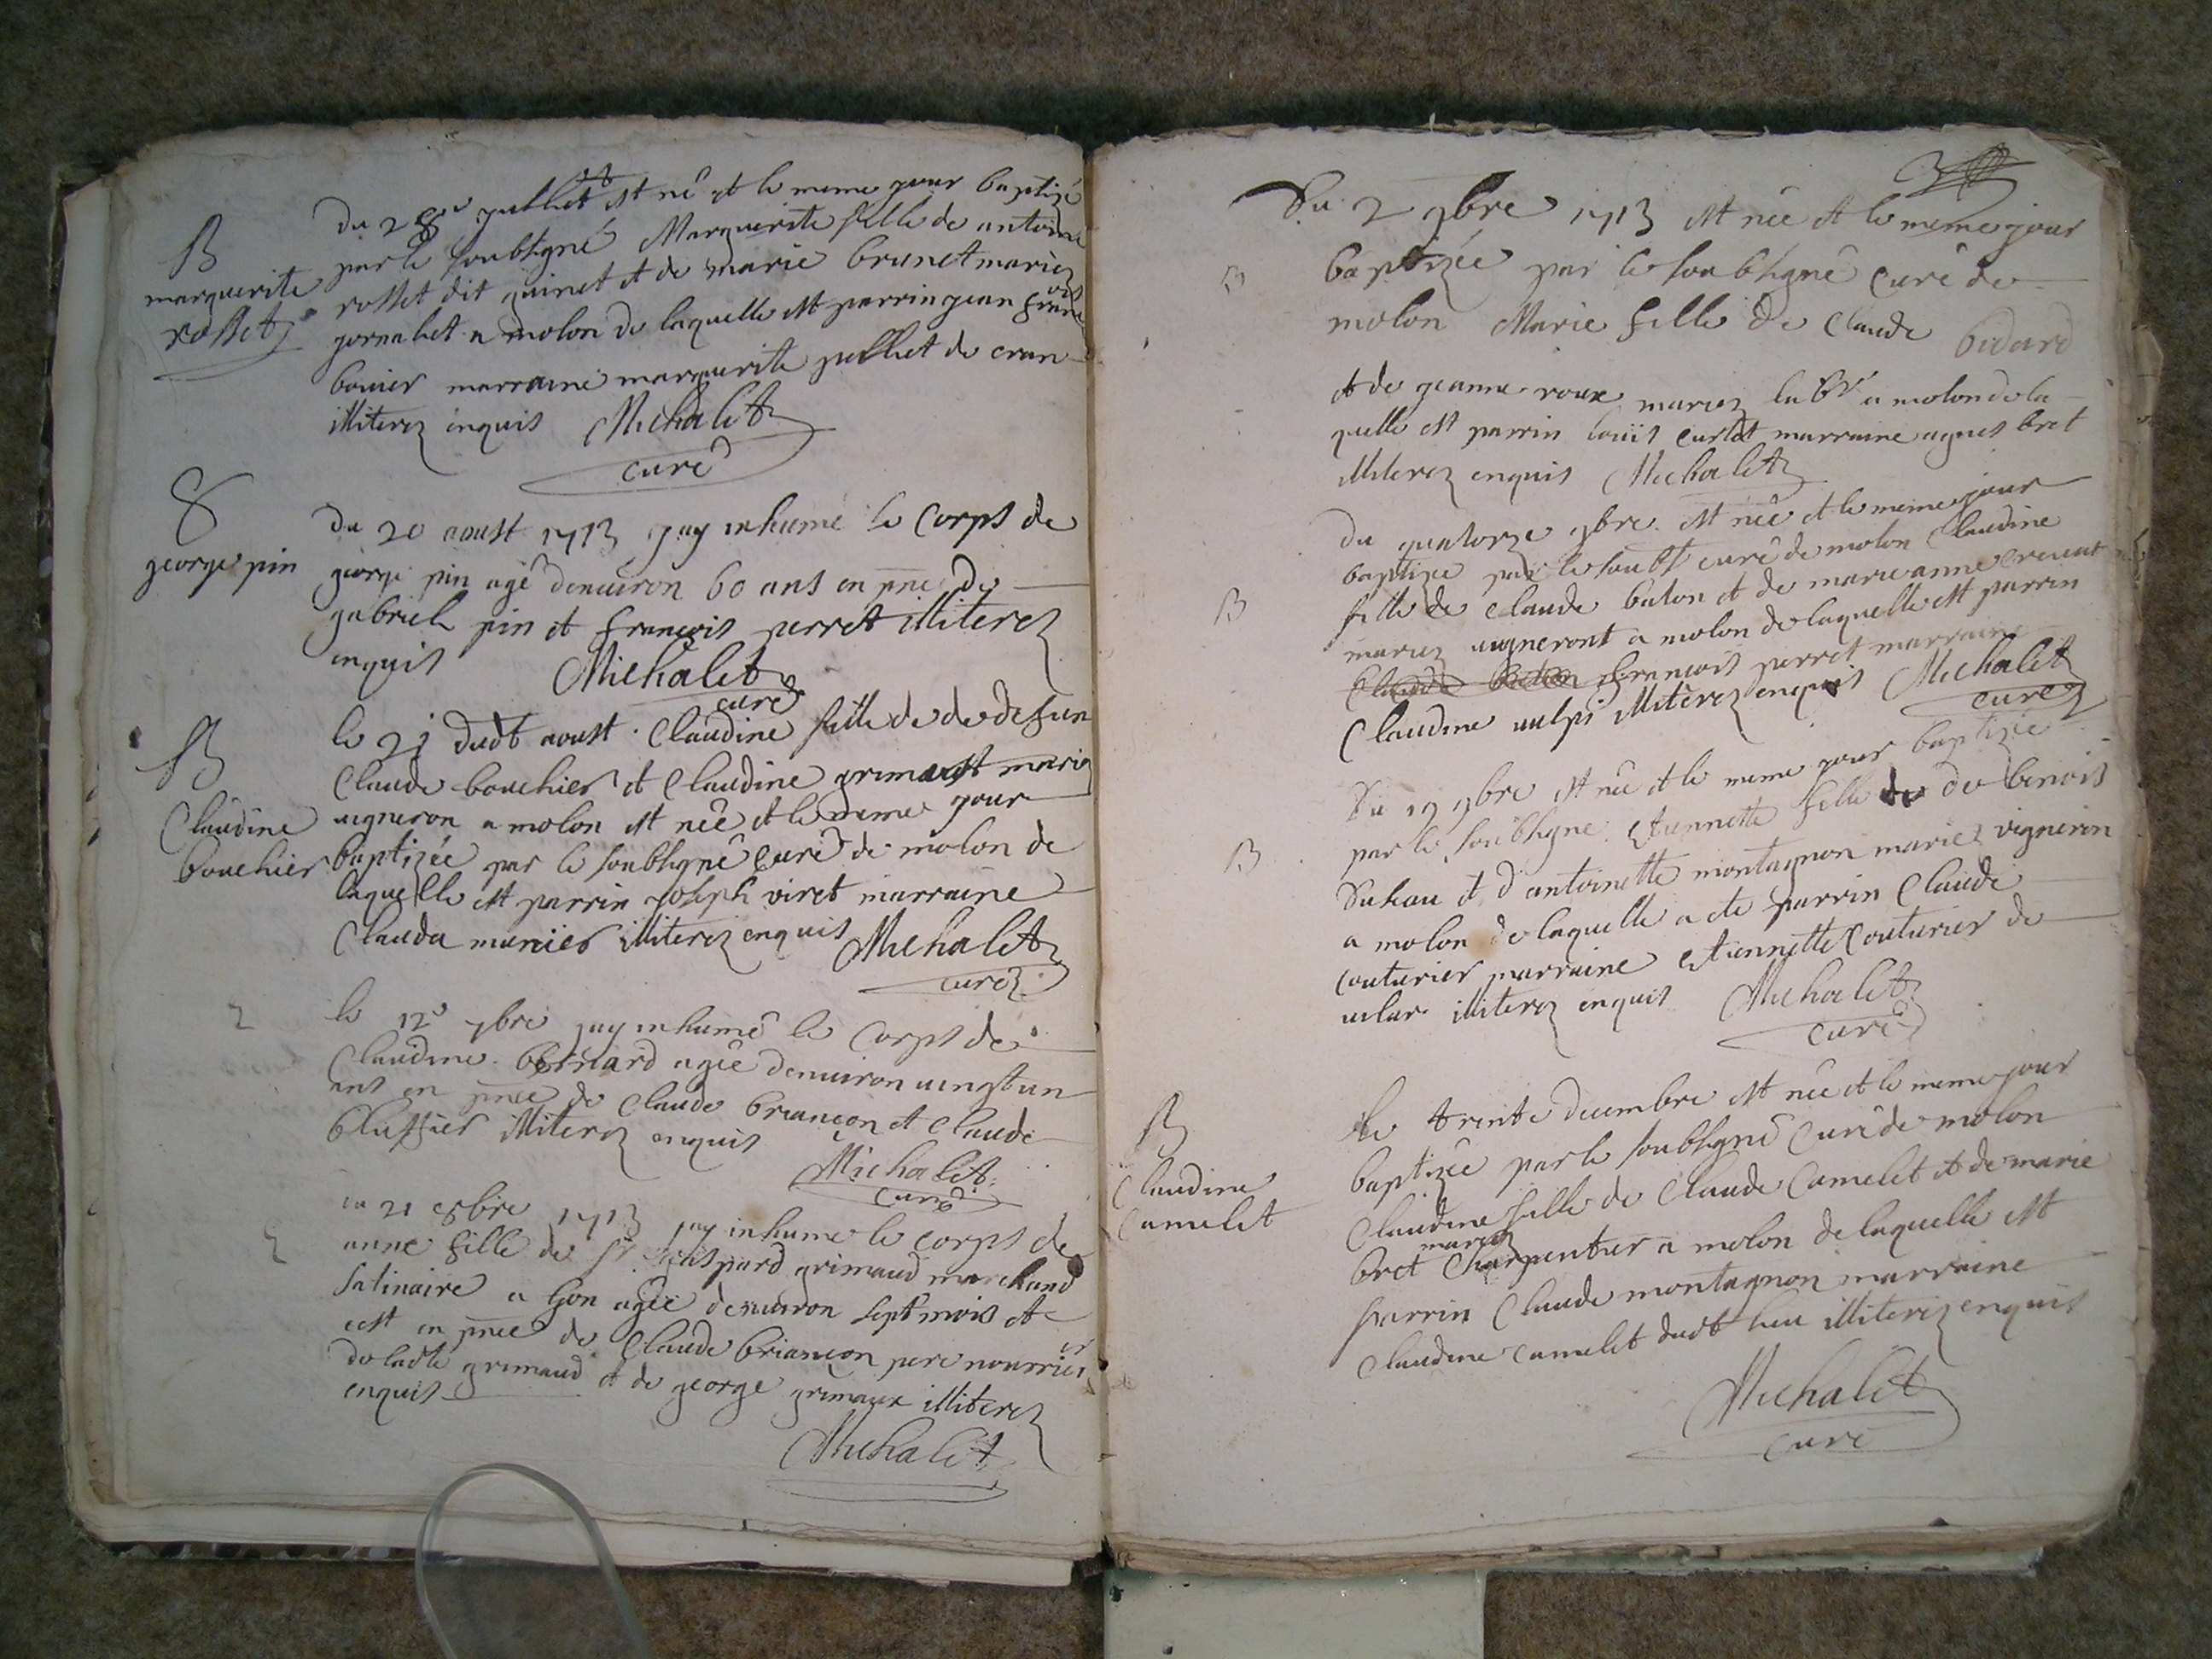 du 28e juillet est né et le meme jour baptizé
par le soubsigné Marguerite fille de antoine
rosset dit guinet et de marie brunet mariez
jornaliet a molon de laquelle est parrin jean franc
ois
bouier marraine marguerite julliet de cran
illiterez enquis Michalet
curé
B
marguerite
rosset
du 20 aoust 1713 jay inhumé le corps de
george pin agé denuiron 60 ans en pnce de
gabriel pin et françois perret illiterez
enquis Michalet
curé
S
george pin
le 21 dudt aoust Claudine fille de de defun
Claude bouchier et Claudine grimaust mariez
uigneron a molon est née et le meme jour
baptizée par le soubsigné Curé de molon de
laquelle est parrin joseph viret marraine
Clauda munier illiterez enquis Michalet
curé
B
Claudine
bouchier
le 12e 7bre jay inhumé le Corps de
Claudine bernard agée denuiron uingt un
ans en pnce de Claude briançon et Claude
illiterez enquis
Michalet
curé
du 21 8bre 1713 jay inhumé le corps de
anne fille de sr gaspard grimaud marchand
Satinaire a lyon agée denuiron sept mois et
cest en pnce de Claude briançon pere nourrici
er
de ladte grimaud et de george grimaux illiterez
enquis
Michalet
Du 2 9bre 1713 est née et le meme jour
baptizée par le soubsigné curé de
molon Marie fille de Claude bidard
et de jeanne roux mariez labr a molon de la
quelle est parrin louis curtet marraine agnes bret
illiterez enquis Michalet
B
du quatorze 9bre est née et le meme jour
baptizee par le soubs curé de molon Claudine
fille de Claude buton et de marie anne
mariez uigneront a molon de laquelle est parrin
Claude buton francois perret marraine
Claudine uulpi illiterez enquis Michalet
curé
B
Du 19 9bre est née et le meme jour baptizée
par le soubsigné Etiennette fille de de benois
Duhau et d antoinette montagnon mariez vigneron
a molon de laquelle a ete parrin Claude
couturier marraine Etiennette Couturier de
uilar illiterez enquis Michalet
curé
B
le trente decembre est née et le meme jour
baptizée par le soubsigné Curé de molon
Claudine fille de Claude Camelet et de marie
mariez
bret Charpentier a molon de laquelle est
parrin Claude montagnon marraine
Claudine camelet dudt lieu illiterez enquis
Michalet
curé
B
Claudine
Camelet